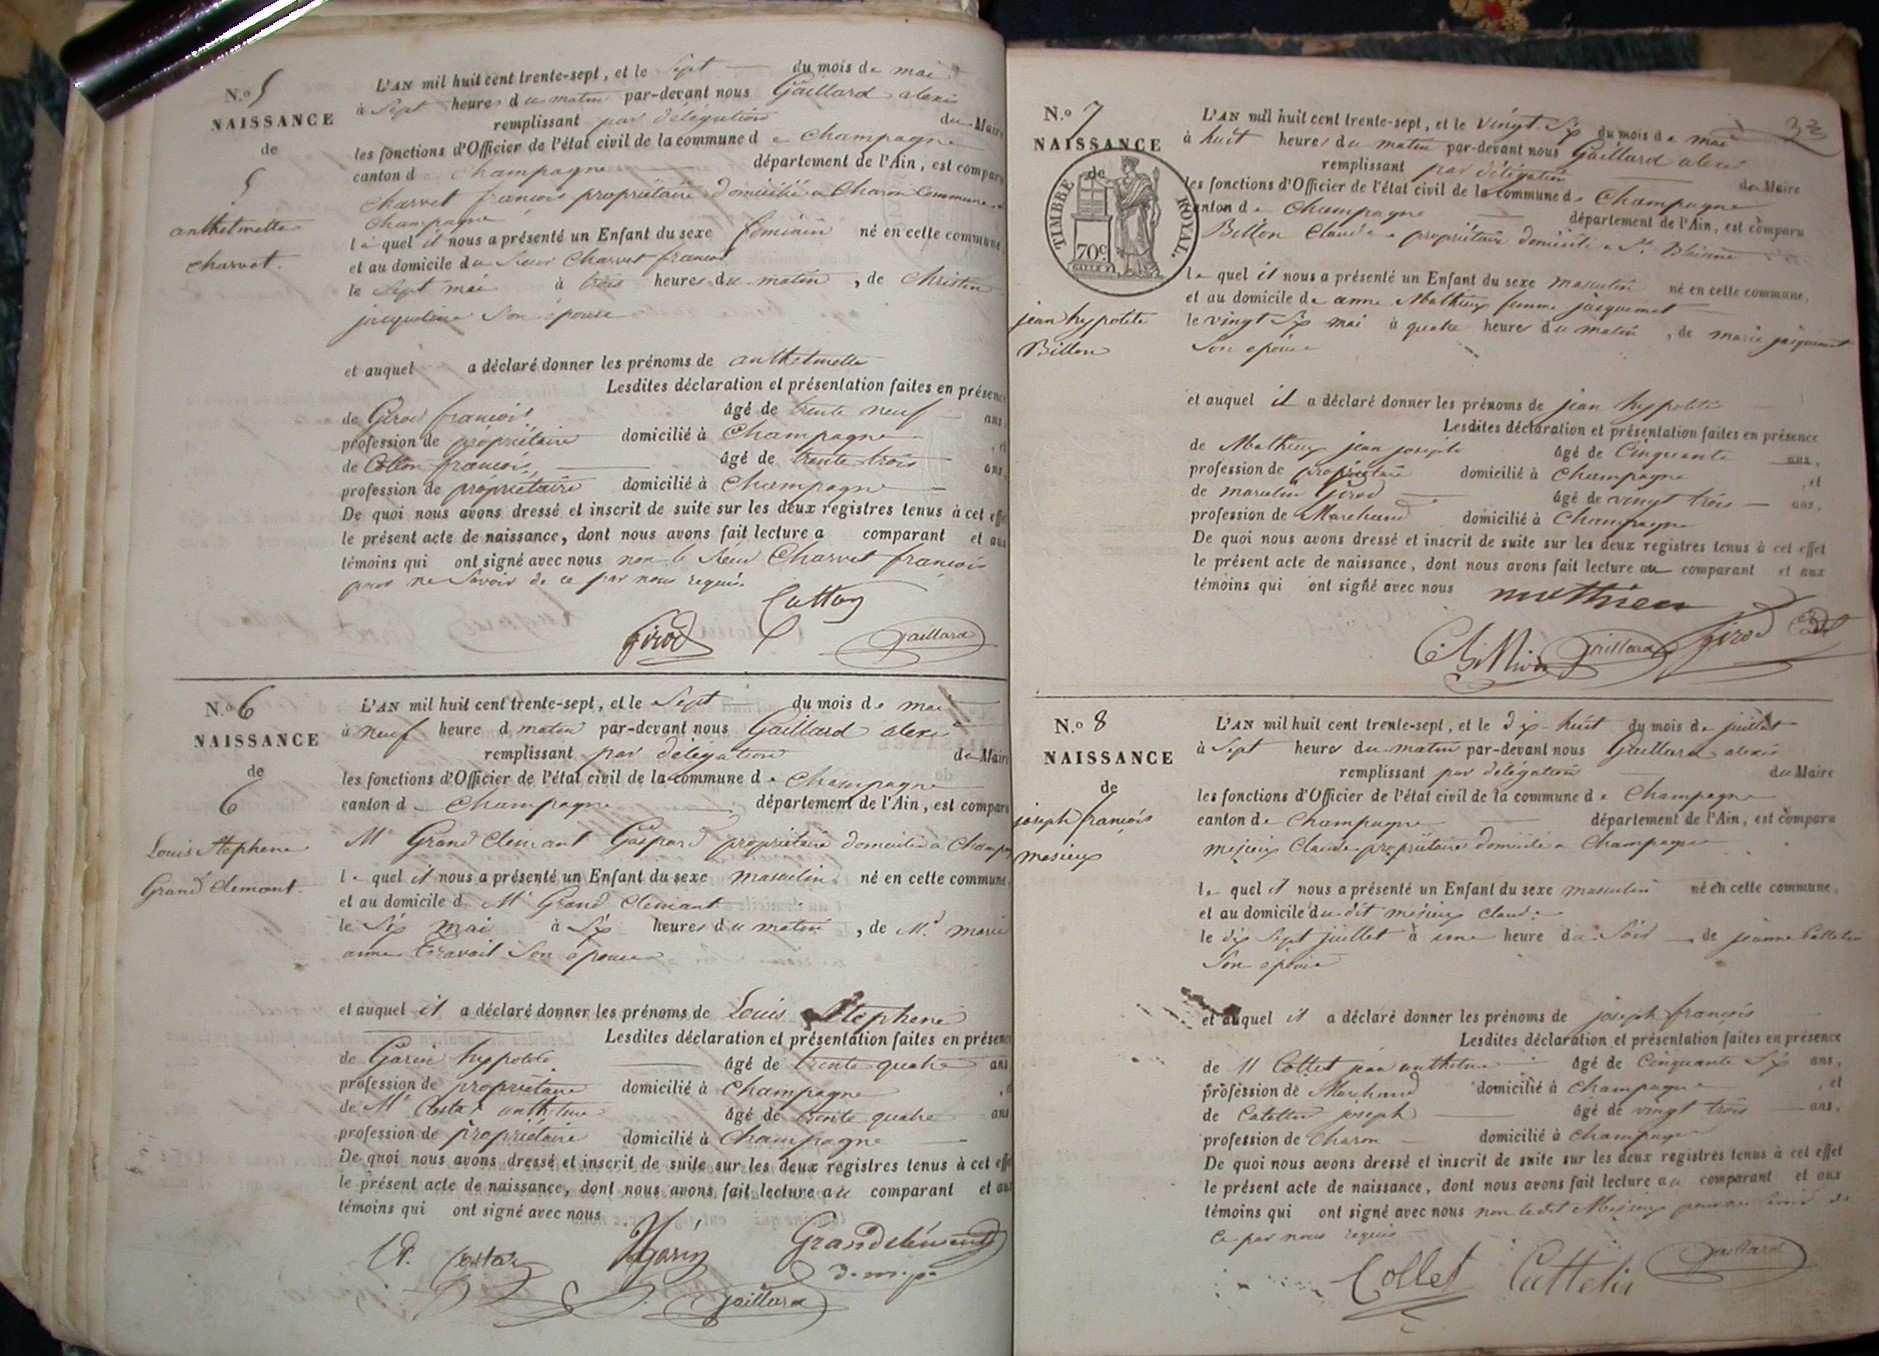 N.o 5
NAISSANCE
de
5
anthelmette
charvet.
L'AN mil huit cent trente-sept, et le Sept du mois de mai
à Sept heures du matin par-devant nous Gaillard alexis
remplissant par délégation du Maire
les fonctions d'Officier de l'état civil de la commune de Champagne
canton de Champagne département de l'Ain, est comparu
Charvet francois propriétaire domicilié a Charon Commune de
Champagne
le quel il nous a présenté un Enfant du sexe féminin né en cette commune
et au domicile du Sieur Charvet francois
le Sept mai à trois heures du matin, de Christin
jacqueline Son épouse
et auquel a déclaré donner les prénoms de anthelmette
Lesdites déclaration et présentation faites en présence
de Girod francois âgé de trente neuf ans,
profession de propriétaire domicilié à Champagne, et
de Cotton francois âgé de trente trois ans,
profession de propriétaire domicilié à Champagne
De quoi nous avons dressé et inscrit de suite sur les deux registres tenus à cet effet
le présent acte de naissance, dont nous avons fait lecture a comparant et aux
témoins qui ont signé avec nous non le Sieur Charvet francois
pour ne Savoir de ce par nous requis
Cutton
Girod Gaillard
N.o 6
NAISSANCE
de
6
Louis Stephene
Grand Clemant.
L'AN mil huit cent trente-sept, et le Sept du mois de mai
à neuf heure d matin par-devant nous Gaillard alexi
remplissant par délégation du Maire
les fonctions d'Officier de l'état civil de la commune de Champagne
canton de Champagne département de l'Ain, est comparu
Mr Grand Clemant Gaspard propriétaire domicilié a Champagne
le quel il nous a présenté un Enfant du sexe masculin né en cette commune
et au domicile d. Mr Grand Clemant
le Six mai à Six heures du matin, de Md marie
anne Travail Son épouse
et auquel il a déclaré donner les prénoms de Louis Stephene
Lesdites déclaration et présentation faites en présence
de Garin hypolite âgé de trente quatre ans
profession de propriétaire domicilié à Champagne, et
de Mr Costaz anthelme âgé de trente quatre ans
profession de propriétaire domicilié à Champagne
De quoi nous avons dressé et inscrit de suite sur les deux registres tenus à cet effet
le présent acte de naissance, dont nous avons fait lecture au comparant et aux
témoins qui ont signé avec nous
Costaz Garin Grandclément
d. m. p.
Gaillard
N.o 7
NAISSANCE
de
TIMBRE ROYAL.
70c
jean hypolite
Billon
L'AN mil huit cent trente-sept, et le vingt Six du mois de mai
à huit heures du matin par-devant nous Gaillard alexi
remplissant par délégation du Maire
les fonctions d'Officier de l'état civil de la commune de Champagne
canton de Champagne département de l'Ain, est comparu
Billon Claude propriétaire domicilié a St.
le quel il nous a présenté un Enfant du sexe masculin né en cette commune,
et au domicile de anne Mathieux femme jacquemet
le vingt Six mai à quatre heures du matin, de marie jacquemet
Son épouse
et auquel il a déclaré donner les prénoms de jean hypolite
Lesdites déclaration et présentation faites en présence
de Mathieux jean joseph âgé de Cinquante ans,
profession de propriétaire domicilié à Champagne, et
de marcelin Girod âgé de vingt trois ans,
profession de Marchand domicilié à Champagne
De quoi nous avons dressé et inscrit de suite sur les deux registres tenus à cet effet
le présent acte de naissance, dont nous avons fait lecture au comparant et aux
témoins qui ont signé avec nous mathieu
C. billion Gaillard Girod
N.o 8
NAISSANCE
de
joseph françois
mesieux
L'AN mil huit cent trente-sept, et le dix-huit du mois de juillet
à Sept heures du matin par-devant nous Gaillard alexis
remplissant par délégation du Maire
les fonctions d'Officier de l'état civil de la commune de Champagne
canton de Champagne département de l'Ain, est comparu
mesieux Claude propriétaire domicilié a Champagne
le quel il nous a présenté un Enfant du sexe masculin né en cette commune,
et au domicile du dit mesieux Claude
le dix Sept juillet à une heure du Soir de jeanne Cattelin
Son épouse
et auquel il a déclaré donner les prénoms de joseph françois
Lesdites déclaration et présentation faites en présence
de M Collet jean anthelme âgé de Cinquante Six ans,
profession de Marchand domicilié à Champagne, et
de Catettin joseph âgé de vingt trois ans,
profession de Charon domicilié à Champagne
De quoi nous avons dressé et inscrit de suite sur les deux registres tenus à cet effet
le présent acte de naissance, dont nous avons fait lecture au comparant et aux
témoins qui ont signé avec nous non ledit Mesieux pour ne Savoir de
Ce par nous requis
Collet Cattelin Gaillard